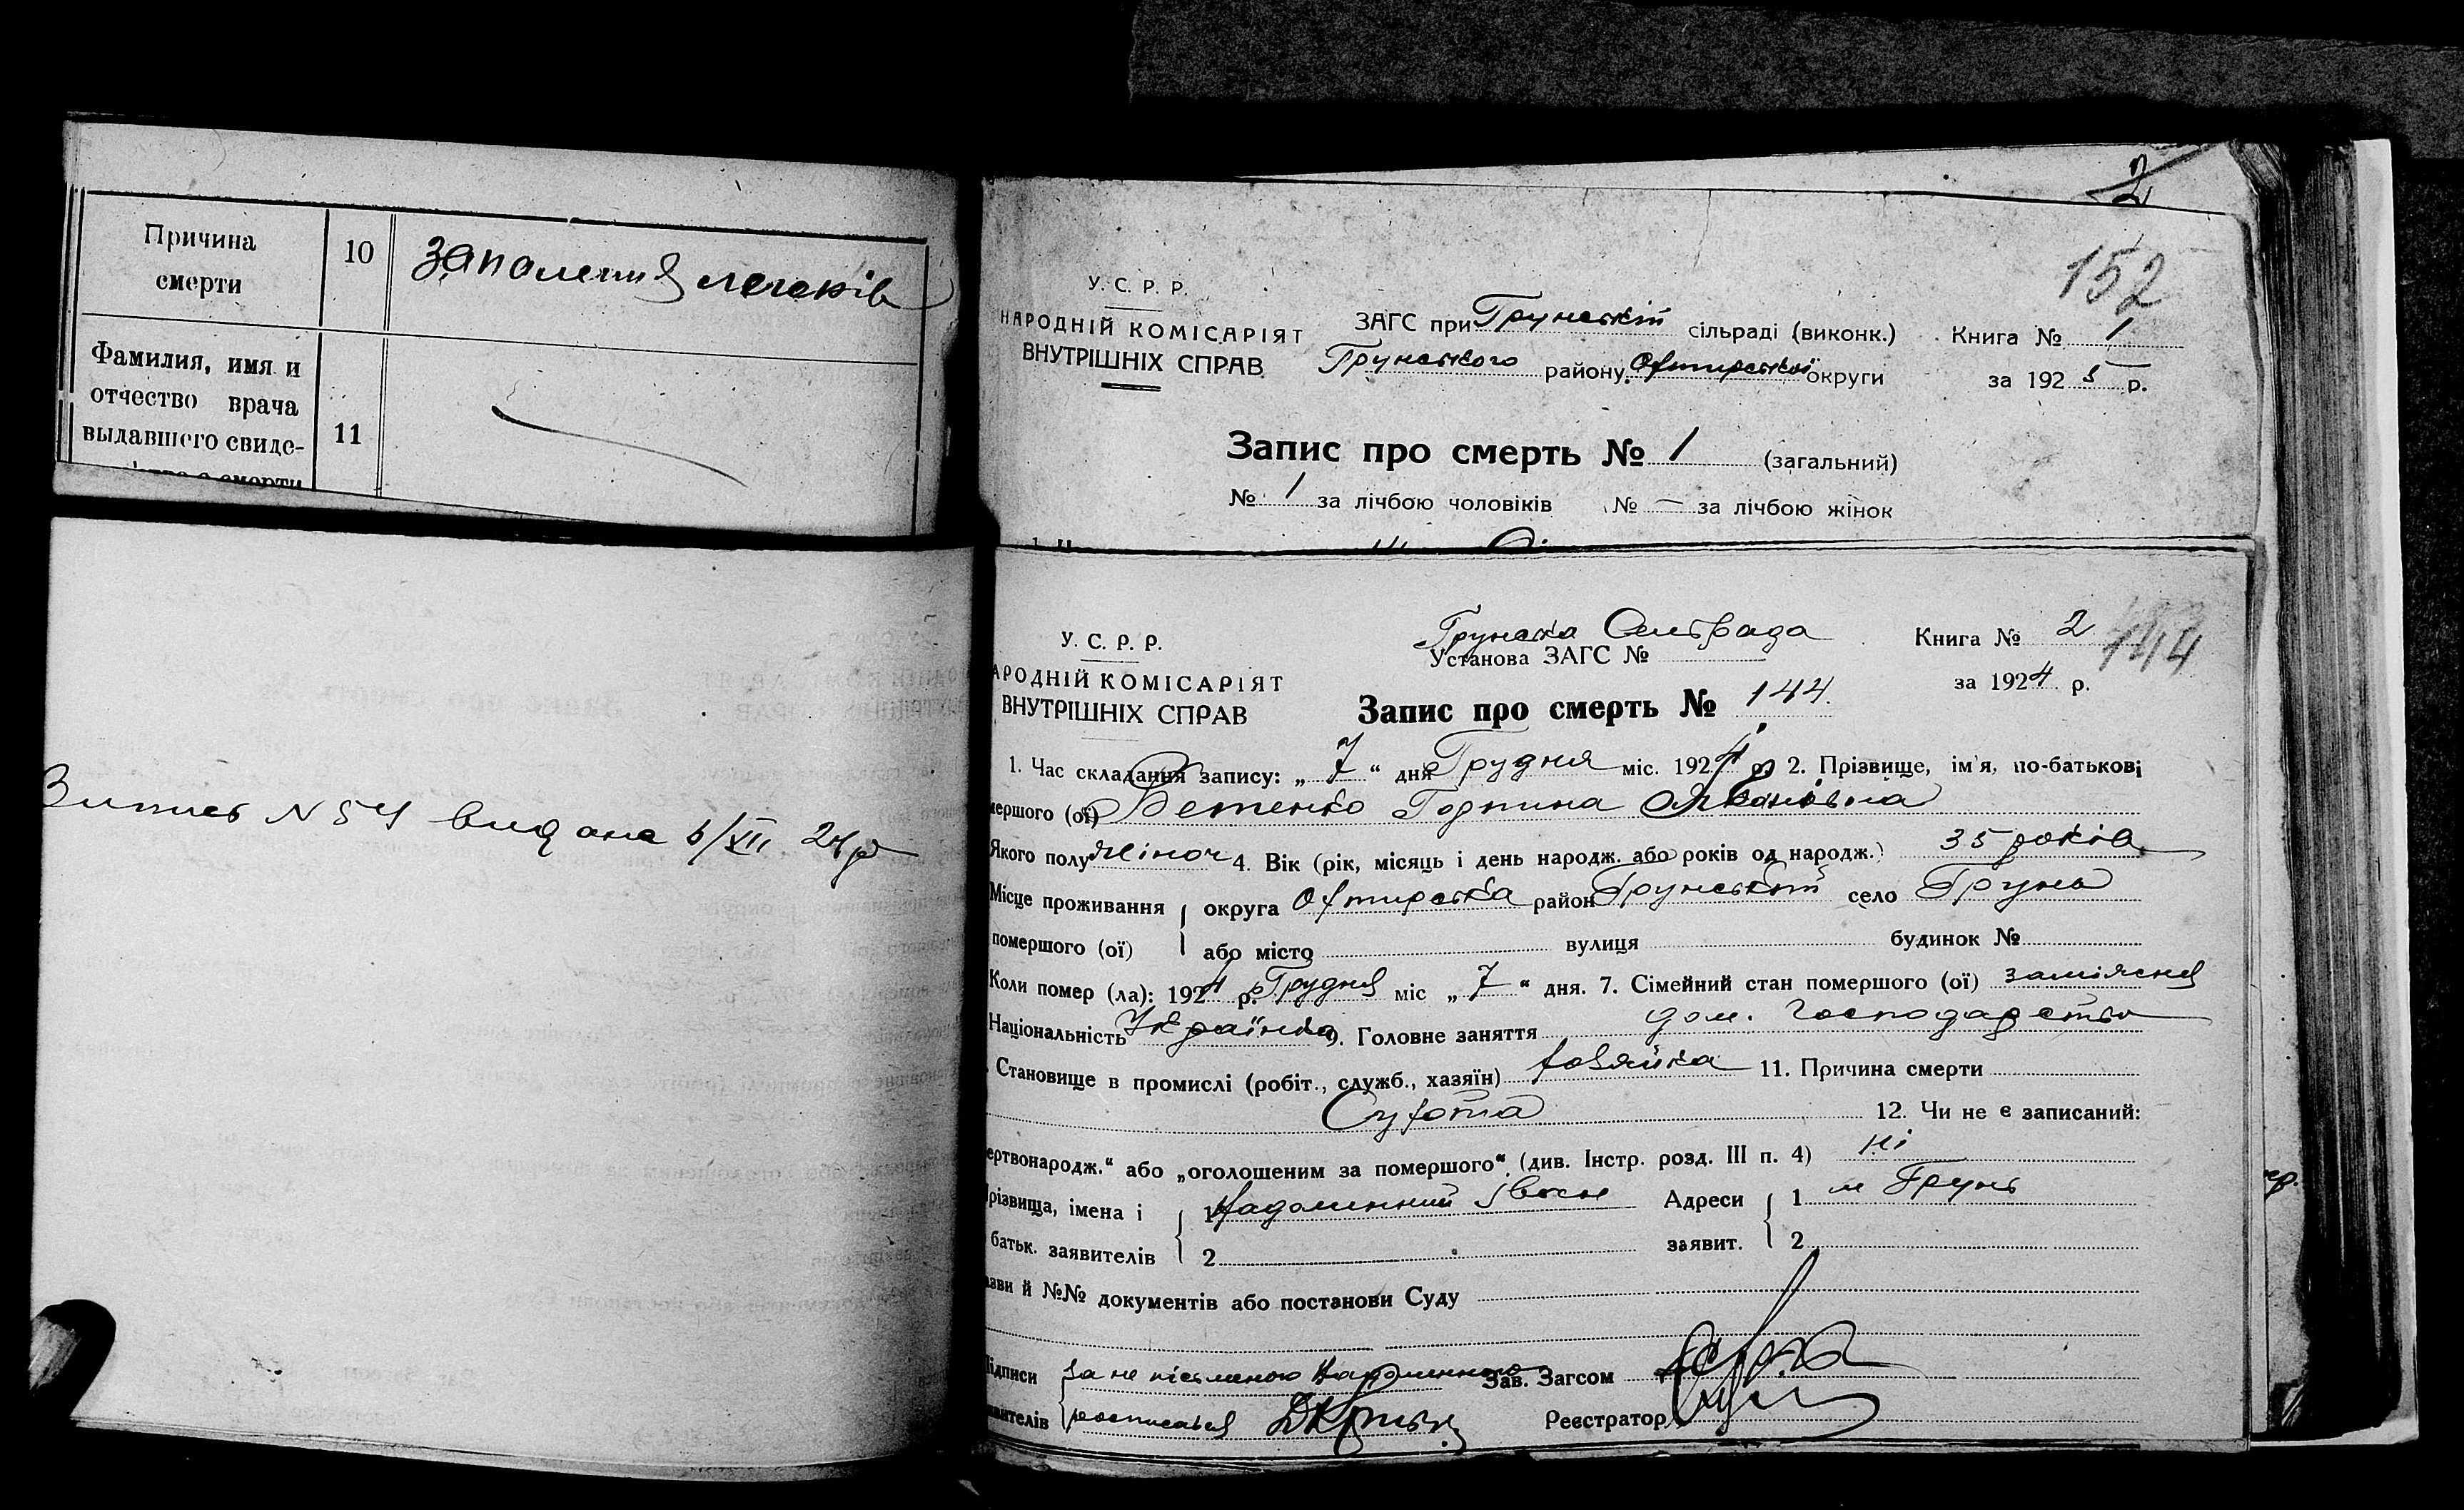 Причина
смерти
10
запалення легенів
Фамилия, имя и
отчество врача
выдавшего свиде-
11
2
152
У. С. Р. Р.
НАРОДНІЙ КОМІСАРІЯТ
ВНУТРІШНІХ СПРАВ
ЗАГС при Грунській сільраді (виконк.)
Грунського району Охтирської округи
Книга № 1
за 1925 р.
Запис про смерть № 1 (загальний)
№ 1 за лічбою чоловіків № — за лічбою жінок
Випись N 54 видана 6/XII 24 р
У. С. Р. Р.
АРОДНІЙ КОМІСАРІЯТ
ВНУТРІШНІХ СПРАВ
Грунська Сельрада
Установа ЗАГС №
Книга № 2
144
за 1924 р.
Запис про смерть № 144.
1. Час складання запису: „ 7 “ дня Грудня міс. 1924 р. 2. Прізвище, ім'я, по-батькові
мершого (ої) Горпина
Якого полу жіноч 4. Вік (рік, місяць і день народж. або років од народж.) 35 років
Місце проживання округа Охтирська район Грунський село Грунь
помершого (ої) або місто вулиця будинок №
Коли помер (ла): 1924 р. Грудня міс „ 7 “ дня. 7. Сімейний стан помершого (ої) заміжня
Національність Українка 9. Головне заняття дом. господарство
Становище в промислі (робіт., служб., хазяїн) хазяйка 11. Причина смерти
Сухота 12. Чи не є записаний:
ертвонародж.“ або „оголошеним за помершого“ (див. Інстр. розд. III п. 4) ні
різвища, імена і 1 Адреси 1 м Грунь
батьк. заявителів 2 заявит. 2
ви й №№ документів або постанови Суду
ідписи за не письменого Зав. Загсом
вителів росписався Реєстратор